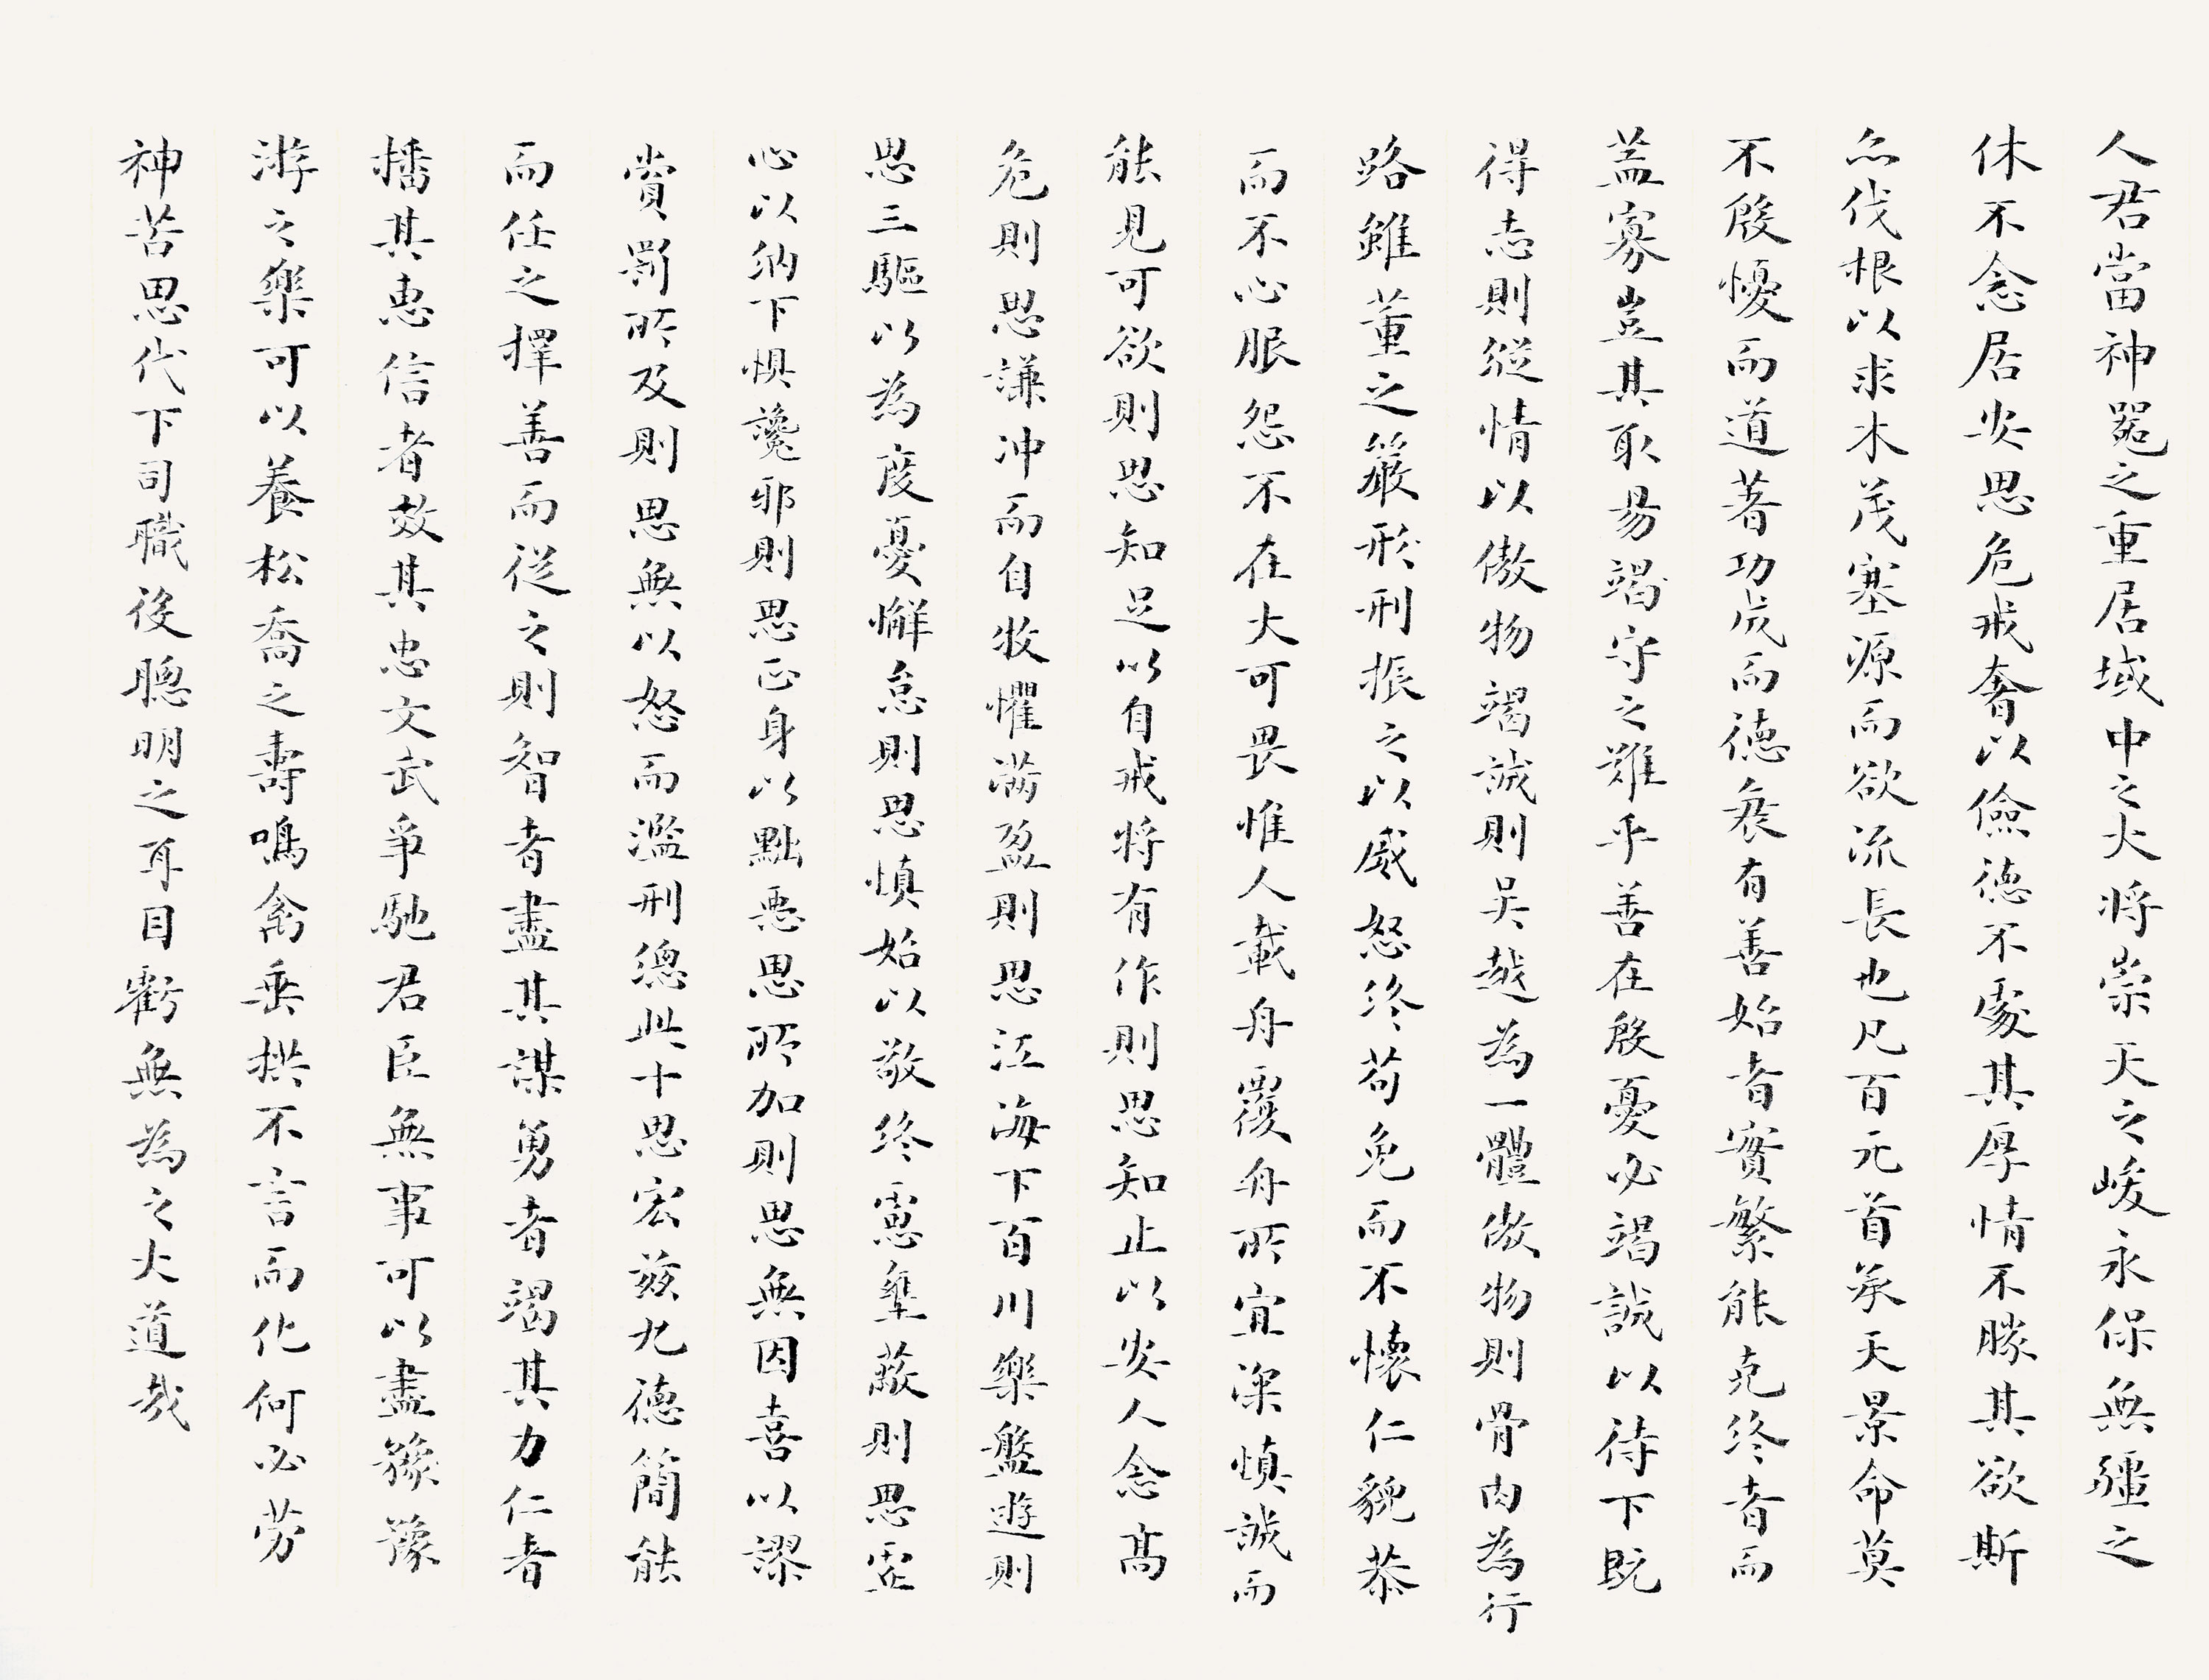 人君當神器之重居域中之大將崇天之峻永保無疆之
休不念居安思危戒奢以儉德不處其厚情不勝其欲斯
亦伐根以求木茂塞源而欲流長也凡百元首承天景命莫
不殷懮而道著功成而德衰有善始者實繁能克終者而
蓋寡豈其取易竭守之難乎善在殷憂必竭誠以待下既
得志則縱情以傲物竭誠則吳越為一體傲物則骨肉為行
路雖董之嚴形刑振之以威怒終苟免而不懷仁貌恭
而不心服怨不在大可畏惟人載舟覆舟所宜深慎誠而
能見可欲則思知足以自戒將有作則思知止以安人念高
危則思謙冲而自牧懼滿盈則思江海下百川樂盤遊則
思三驅以為度憂懈怠則思慎始以敬終慮壅蔽則思虛
心以納下懼讒邪則思正身以黜惡思所加則思無因喜以謬
賞罰所及則思無以怒而濫刑總此十思宏茲九德簡能
而任之擇善而從之則智者盡其謀勇者竭其力仁者
播其惠信者效其忠文武爭馳君臣無事可以盡豫豫
游之樂可以養松喬之壽鳴禽垂拱不言而化何必勞
神苦思代下司職後聰明之耳目虧無為之大道哉